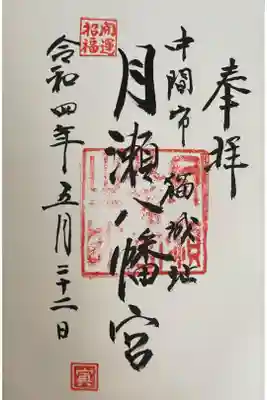 奉拝
中間市 猫城址
月瀬八幡宮
令和四年五月二十二日
開運
招福
寅